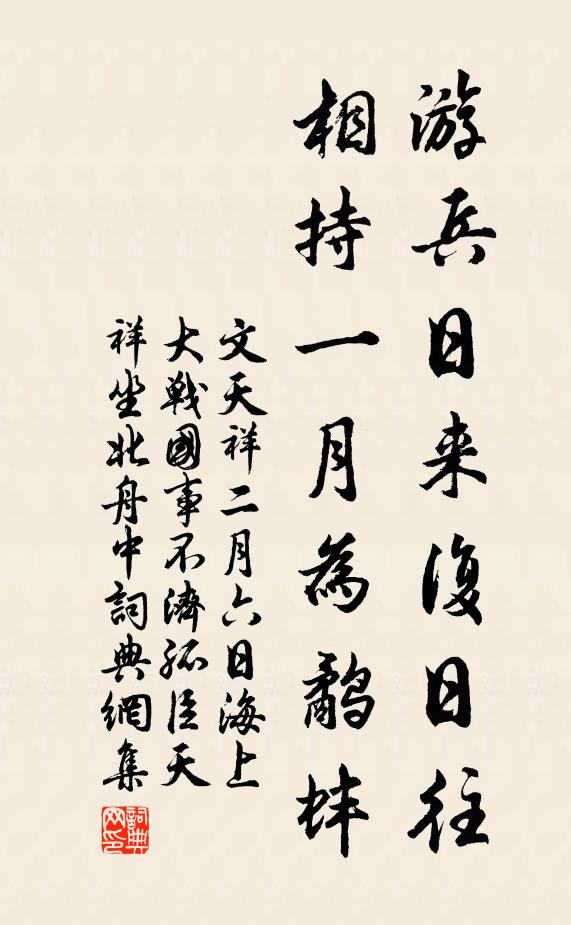 游兵日来復日往
相持一月為鷸蚌
文天祥二月六日海上
大戰國事不濟孤臣天
祥坐北舟中詞典網集
詞典网印